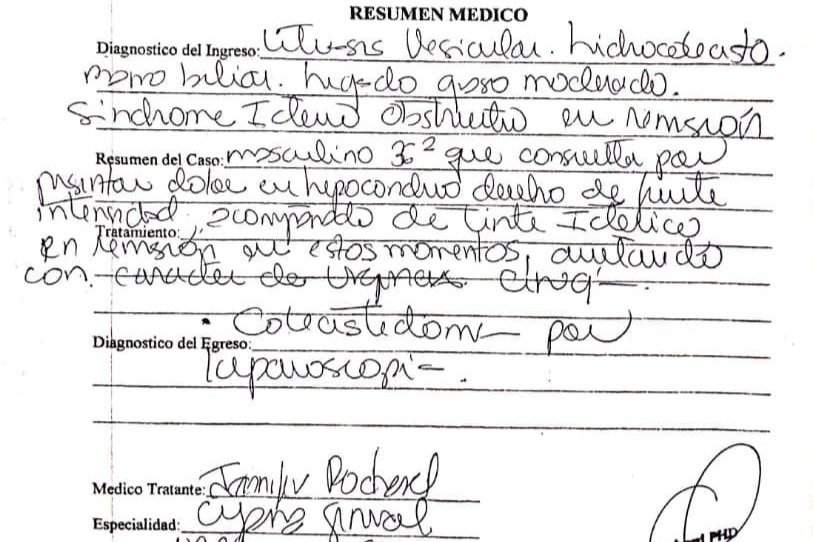 RESUMEN MEDICO
Diagnostico del Ingreso: Litiasis Vesicular. hidrocolecisto.
biliar. higado graso moderado.
Sindrome Icterico Obstructivo en remisión
Resumen del Caso: masculino 36ª que consulta por
presentar dolor en hipocondrio derecho de fuerte
intensidad acompañado de tinte Icterico
Tratamiento:
en remisión en estos momentos, ameritando
con caracter de urgencia cirugia.
• Colecistectomia por
Diagnostico del Egreso:
laparoscopia.
Medico Tratante:
Especialidad: General
PHD